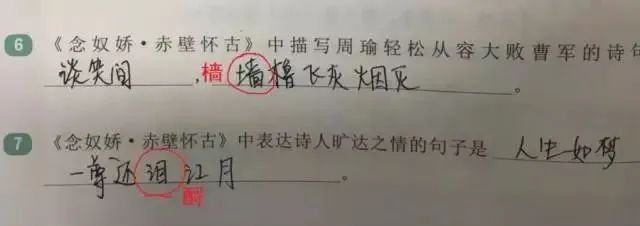 6 《念奴娇·赤壁怀古》中描写周瑜轻松从容大败曹军的诗句
谈笑间，樯墙橹飞灰烟灭。
7 《念奴娇·赤壁怀古》中表达诗人旷达之情的句子是 人生如梦
一尊还泪江月。
酹